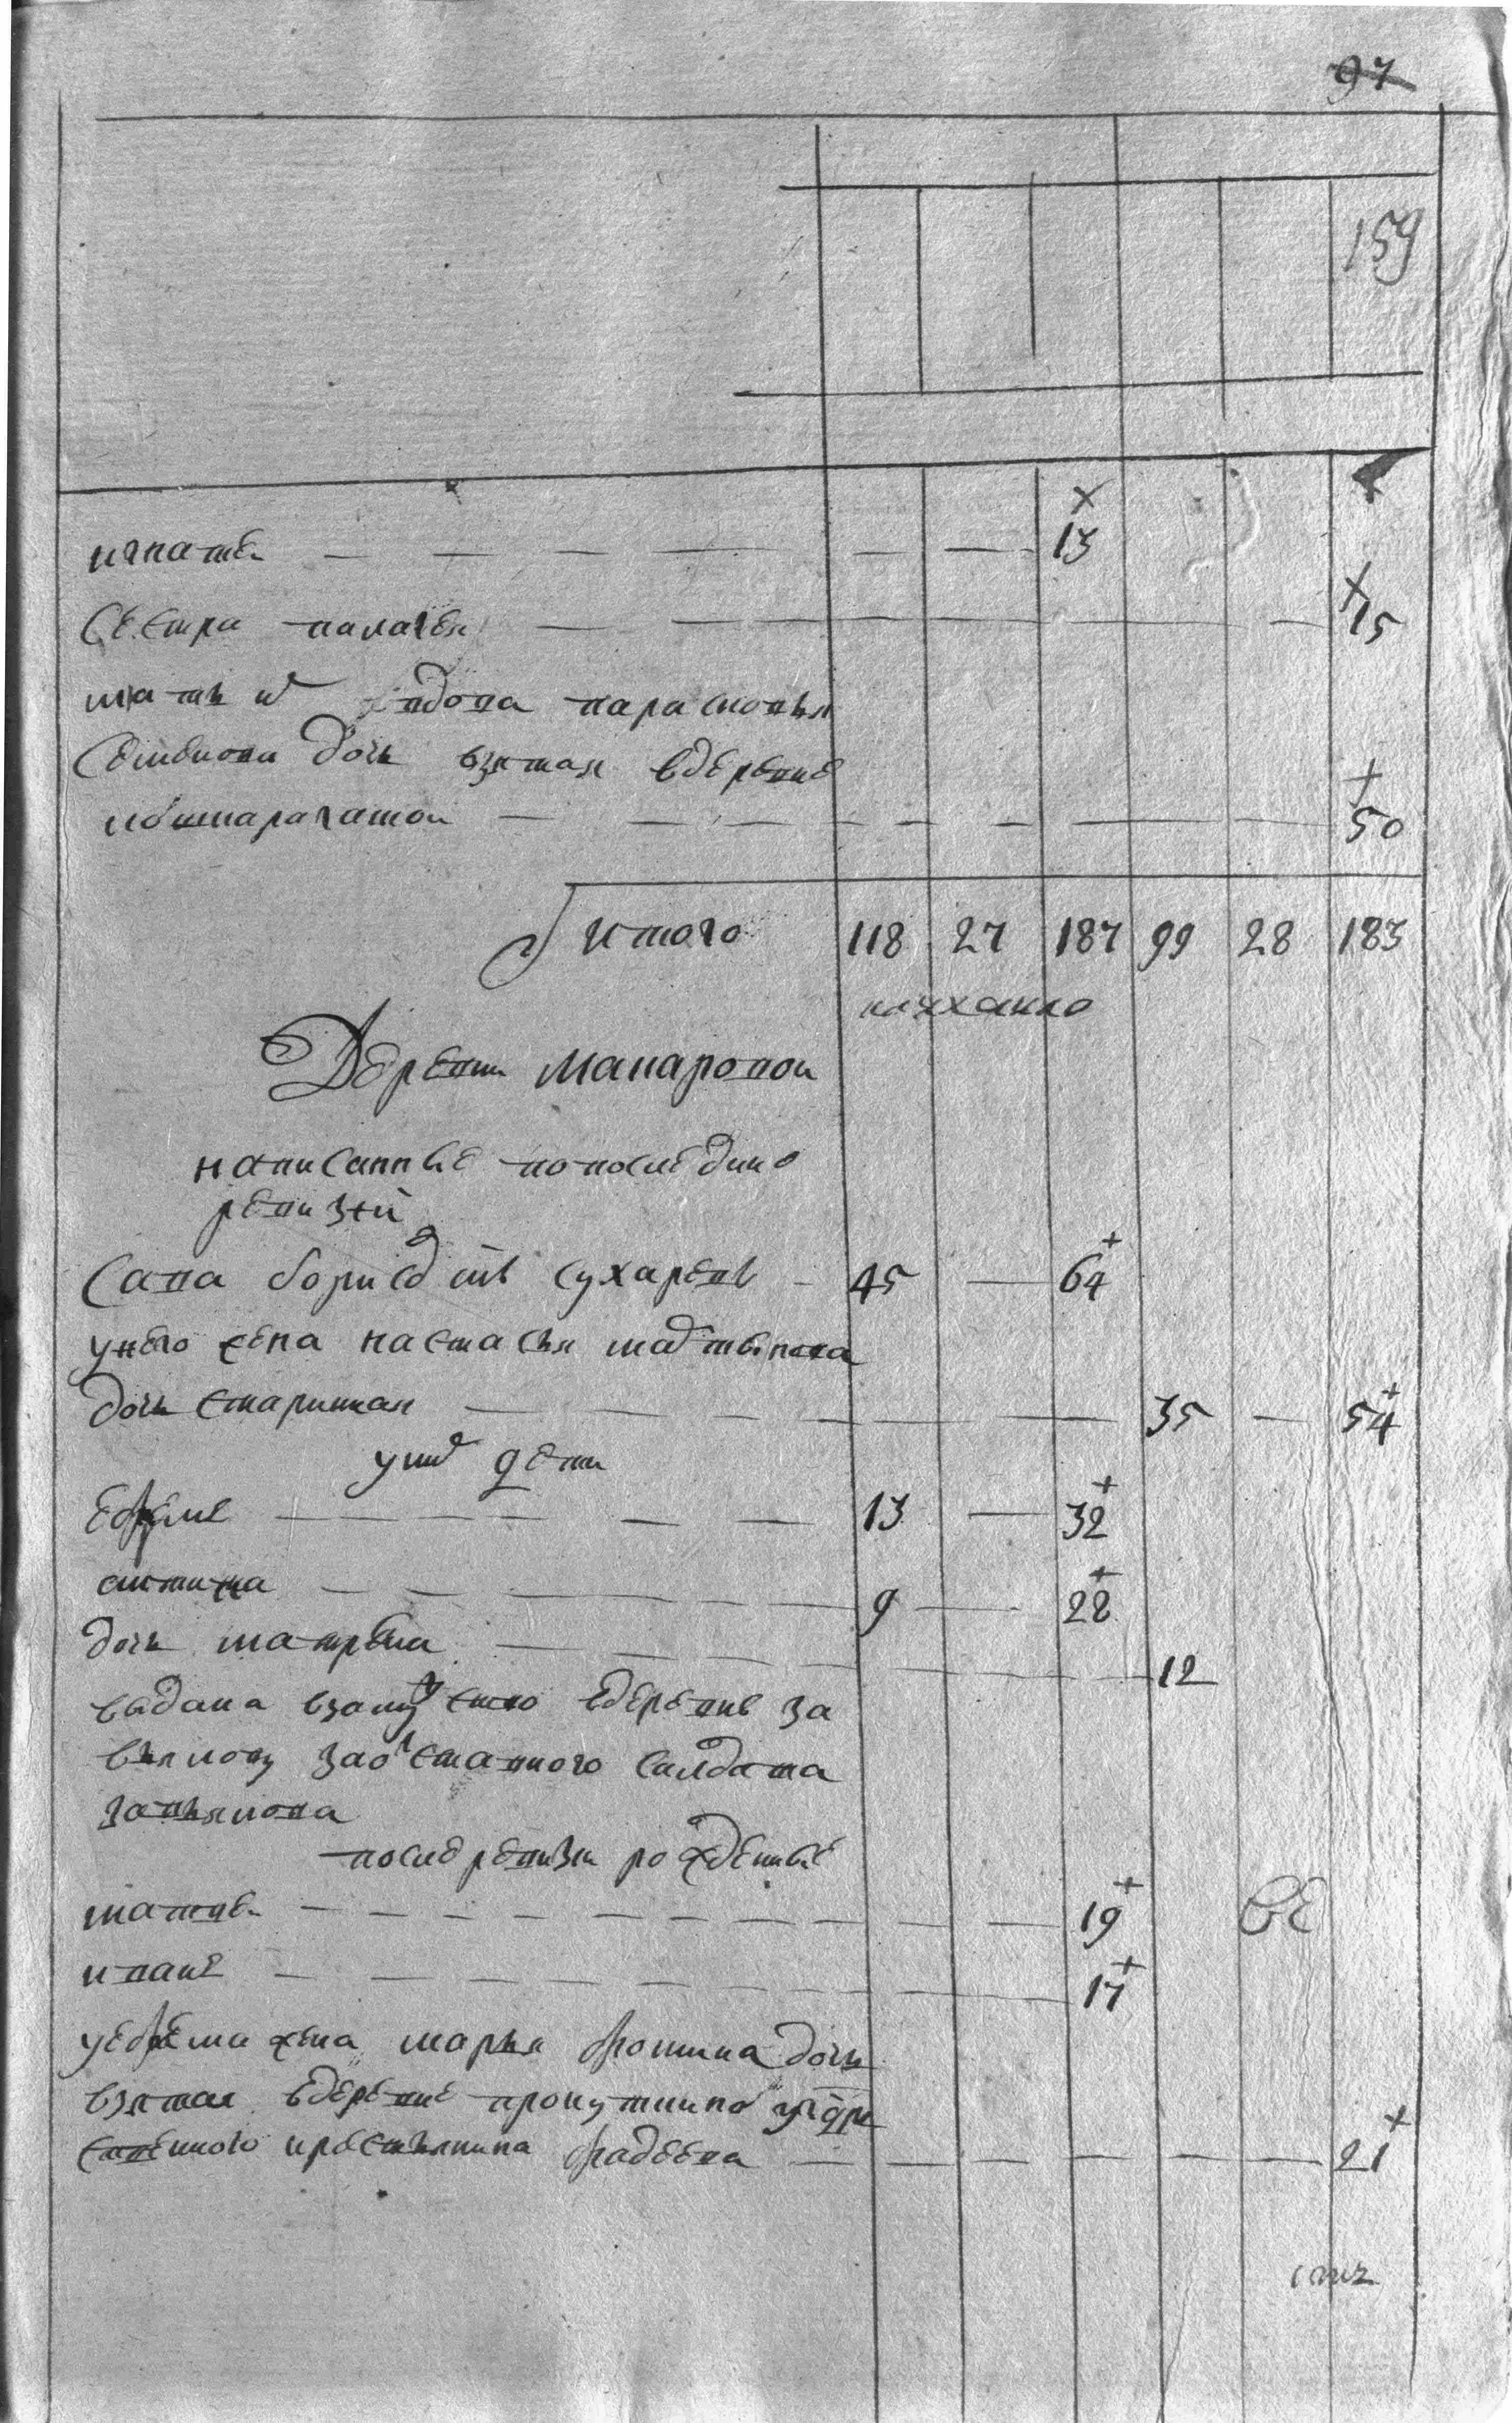 97
159
игнатеи — — — — — — — 13
сестра палагея — — — — — — 15
мать их вдова парасковья
семенова дочь взятая вдеревне
— — — — — — — 50
итого 118 27 187 99 28 183
Деревни макаровои
написанные попоследнеи
ревизии
Сава борисов снъ сухаревъ - 45 — 64
унего жена настасья матвеева
дочь старинная — — — — — — 35 — 54
уних дети
ефремъ — — — — — — 13 — 32
никита — — — — — — 9 — 28
дочь матрена — — — — — — 12
выдана взамужество вдеревню за
вьялову заотставного салдата
завьялова
после ревизи рожденные
матвеи — — — — — — — — 19
иванъ — — — — — — — — 17
уефрема жена марья фомина дочь
взятая вдеревне
крестьянина фадеева — — — — — — 21